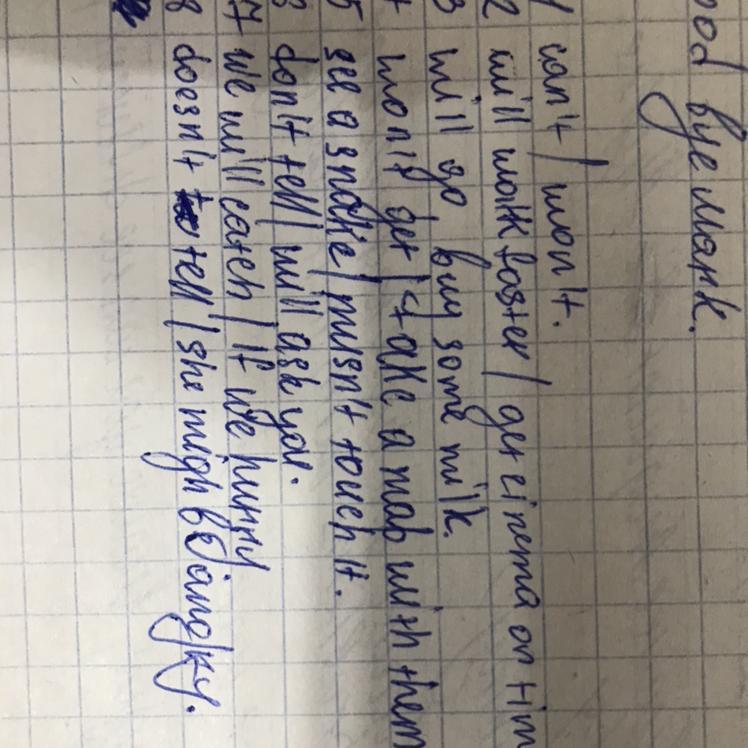 ood bye Mark.
1 can't / won't.
2 will walk faster / get cinema on tim
3 will go, buy some milk.
4 won't get / take a map with them
5 see a snake / musn't touch it.
6 don't tell / will ask you.
7 we will catch / if we hurry
8 doesn't tell / she migh be angry.